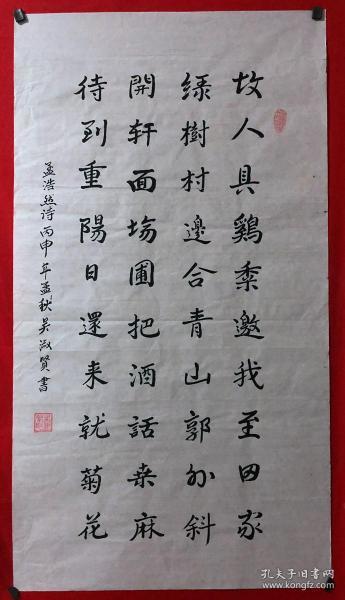 故人具鷄黍邀我至田家
綠樹村邊合青山郭外斜
開轩面場圃把酒話桑麻
待到重陽日還来就菊花
孟浩然诗丙申年孟秋吴淑賢書
孔夫子旧书网
www.kongfz.com